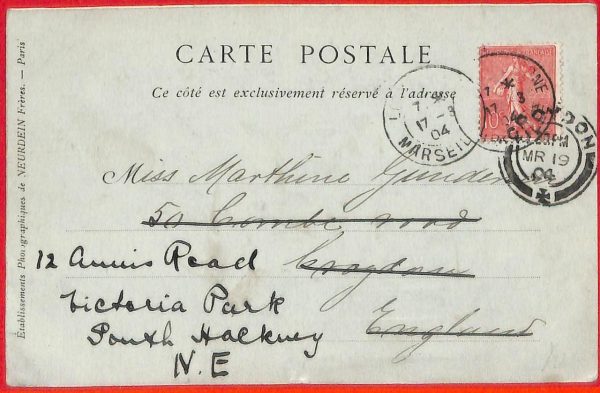 CARTE POSTALE
Ce côté est exclusivement réservé à l'adresse
Établissements Photographiques de NEURDEIN Frères. — Paris
7 *
17 - 3
04
MARSEIL
MR 19
04
Miss Marthine
50 Combe road
Croydon
England
12 Annis Road
Victoria Park
South Hackney
N.E